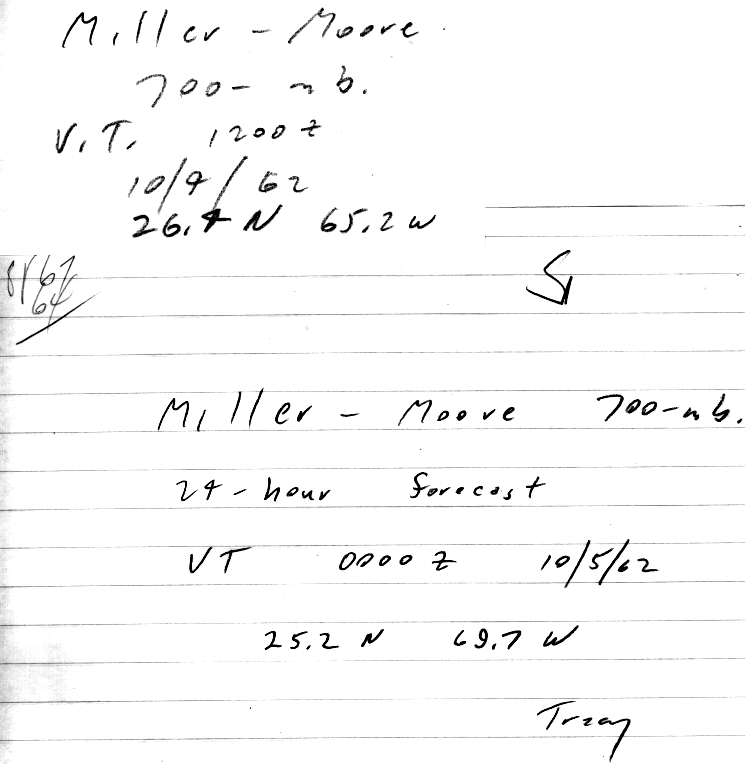 Miller - Moore
700- mb.
V.T. 1200 Z
10/4/62
26.4 N 65.2 W
Miller - Moore 700-mb.
24-hour forecast
VT 0000 Z 10/5/62
25.2 N 69.7 W